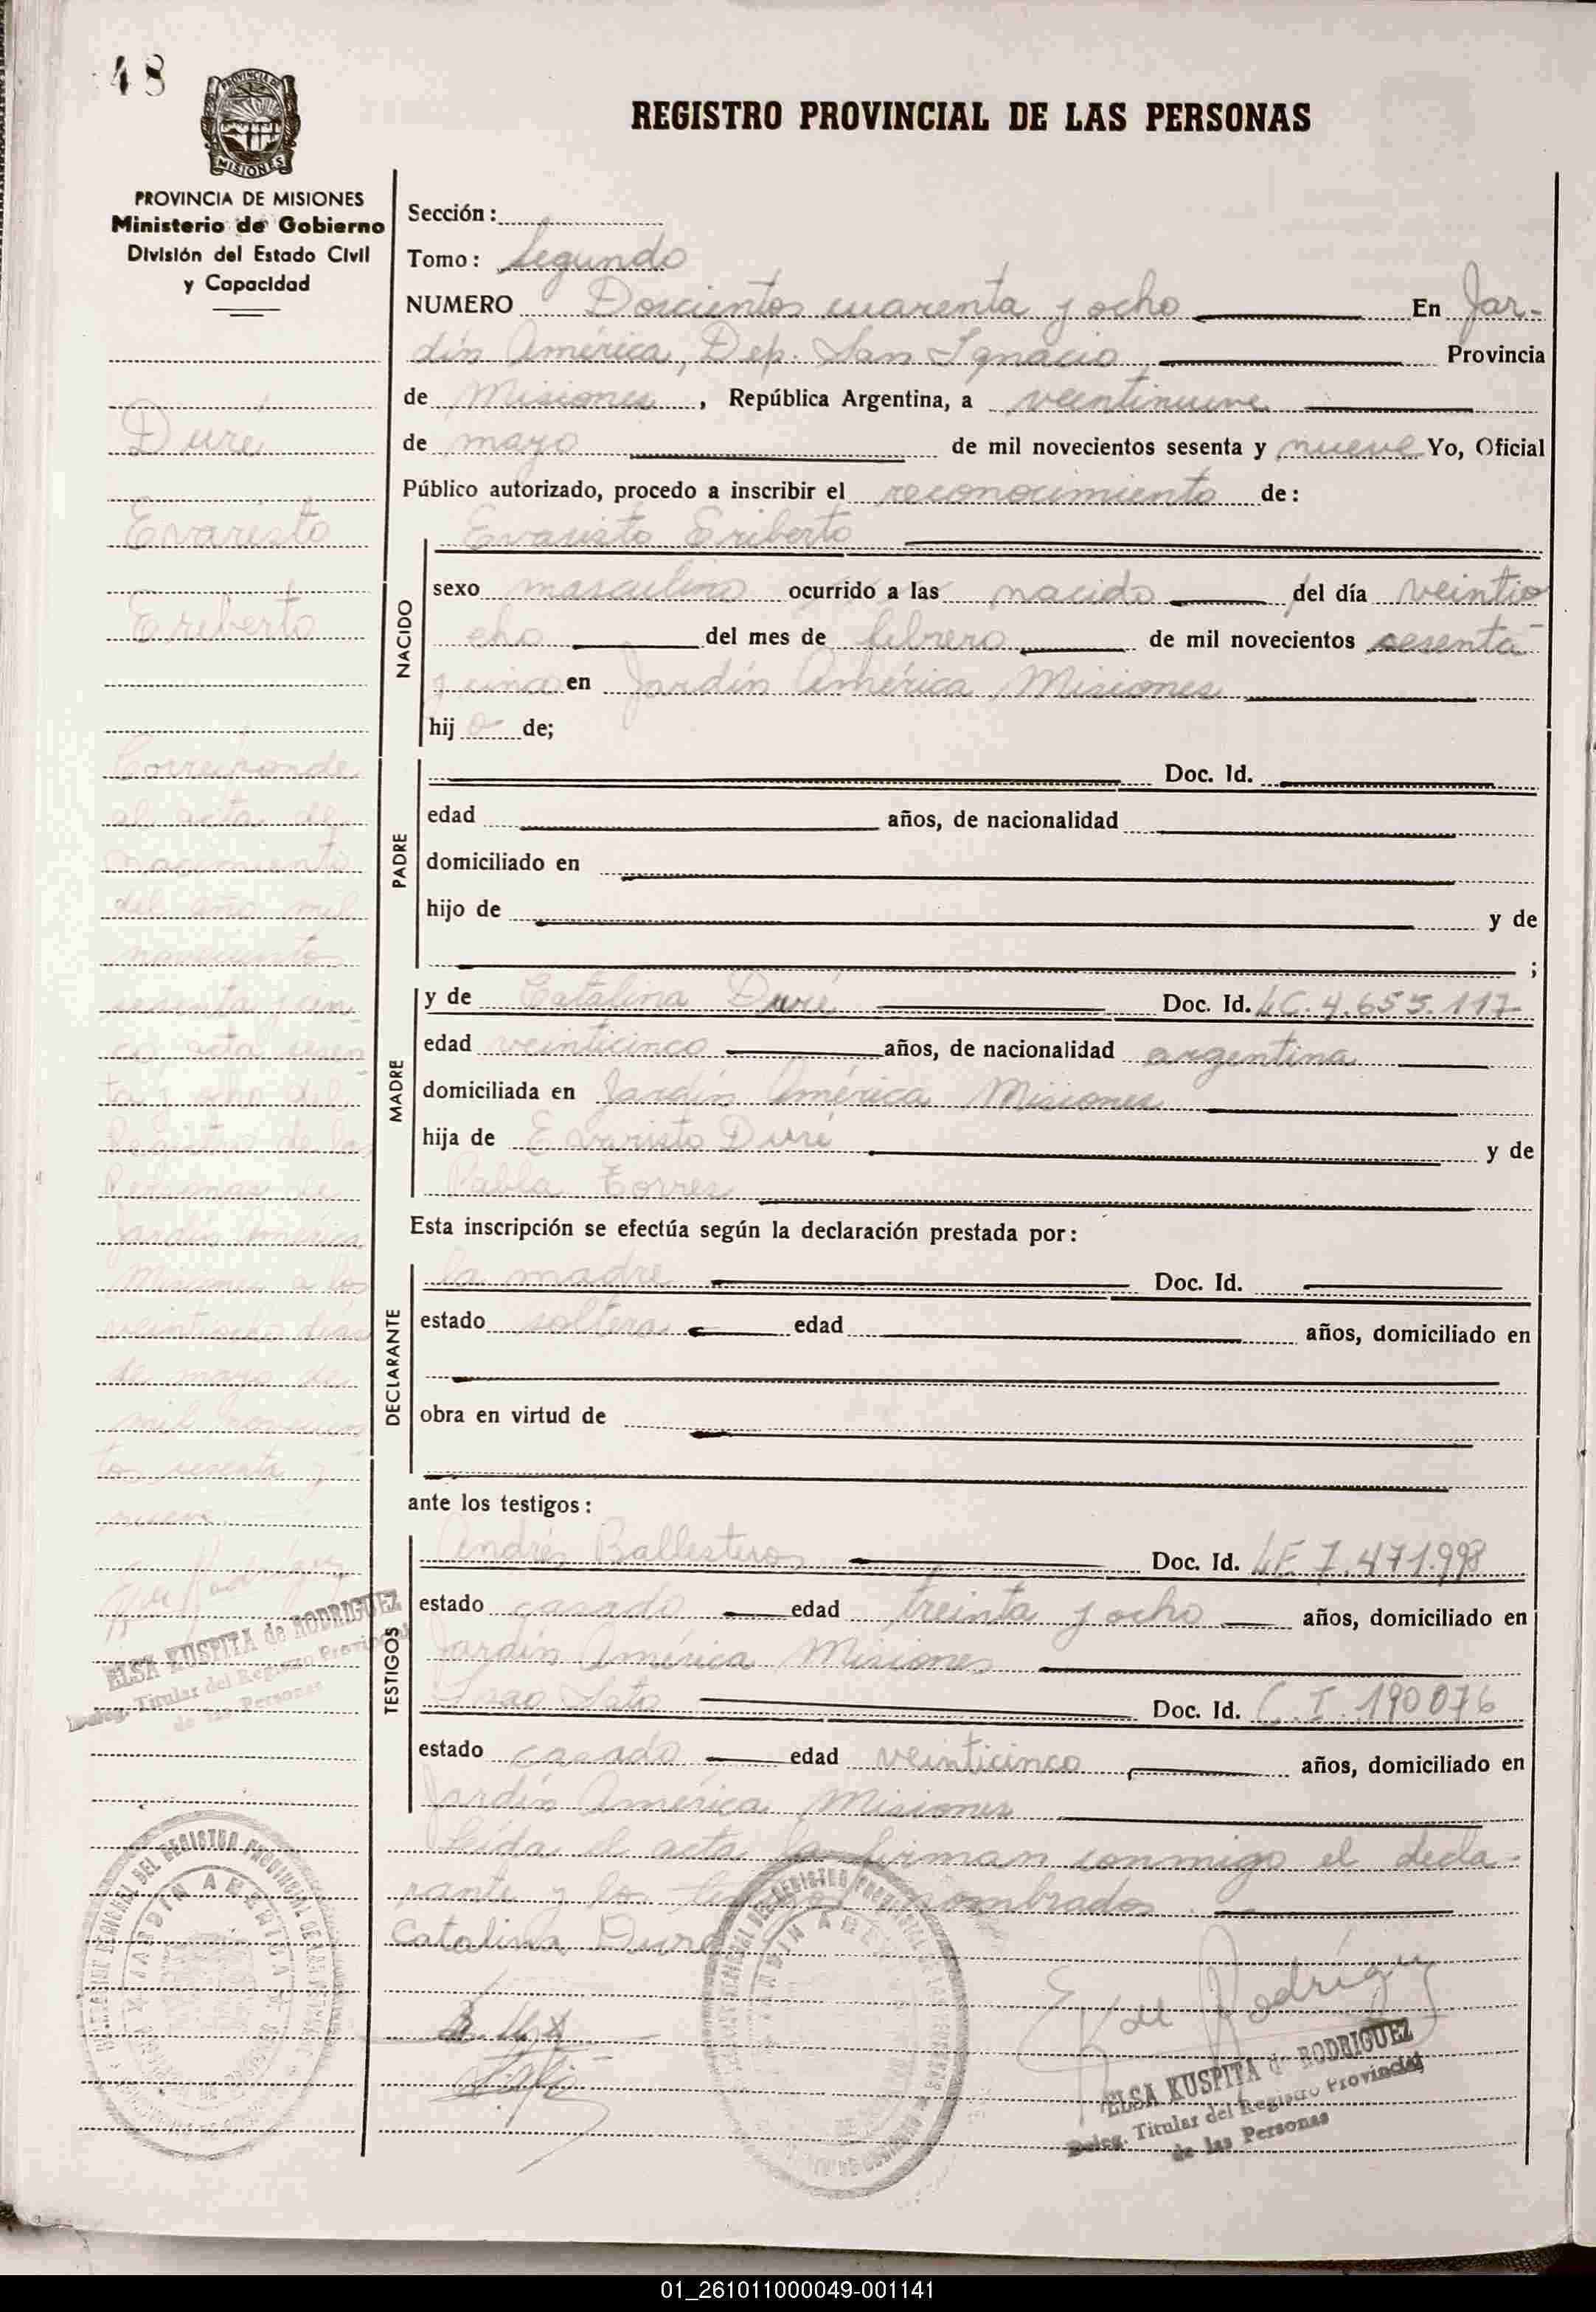 48
PROVINCIA DE MISIONES
MISIONES
PROVINCIA DE MISIONES
Ministerio de Gobierno
División del Estado Civil
y Capacidad
Duré
Evaristo
Eriberto
Corresponde
al acta de
nacimiento
del año mil
novecientos
sesenta y cin-
co, acta sesen
ta y ocho del
Registro de las
Personas de
Jardín América
Misiones a los
veintiocho días
de mayo de
mil novecien
tos sesenta y
nueve.
ELSA KUSPITA de RODRIGUEZ
Deleg. Titular del Registro Provincial
de las Personas
REGISTRO PROVINCIAL DE LAS PERSONAS
Sección:
Tomo: Segundo
NUMERO Doscientos cuarenta y ocho En Jar-
dín América, Dep. San Ignacio Provincia
de Misiones, República Argentina, a veintinueve
de mayo de mil novecientos sesenta y nueve Yo, Oficial
Público autorizado, procedo a inscribir el reconocimiento de:
NACIDO
Evaristo Eriberto
sexo masculino ocurrido a las nacido del día veintio
cho del mes de febrero de mil novecientos sesenta
y cinco en Jardín América Misiones
hijo de;
PADRE
Doc. Id.
edad años, de nacionalidad
domiciliado en
hijo de y de
;
MADRE
y de Catalina Duré Doc. Id. LC. 4.655.117
edad veinticinco años, de nacionalidad argentina
domiciliada en Jardín América Misiones
hija de Evaristo Duré y de
Pabla Torres
Esta inscripción se efectúa según la declaración prestada por:
DECLARANTE
la madre Doc. Id.
estado soltera edad años, domiciliado en
obra en virtud de
ante los testigos:
TESTIGOS
Andrés Ballesteros Doc. Id. LE 7.471.998
estado casado edad treinta y ocho años, domiciliado en
Jardín América Misiones
Isao Sato Doc. Id. C.I. 190076
estado casado edad veinticinco años, domiciliado en
Jardín América Misiones
Leída el acta la firman conmigo el decla-
rante y los nombrados.
Catalina Duré
JARDIN AMERICA
ELSA KUSPITA de RODRIGUEZ
Deleg. Titular del Registro Provincial
de las Personas
01_261011000049-001141